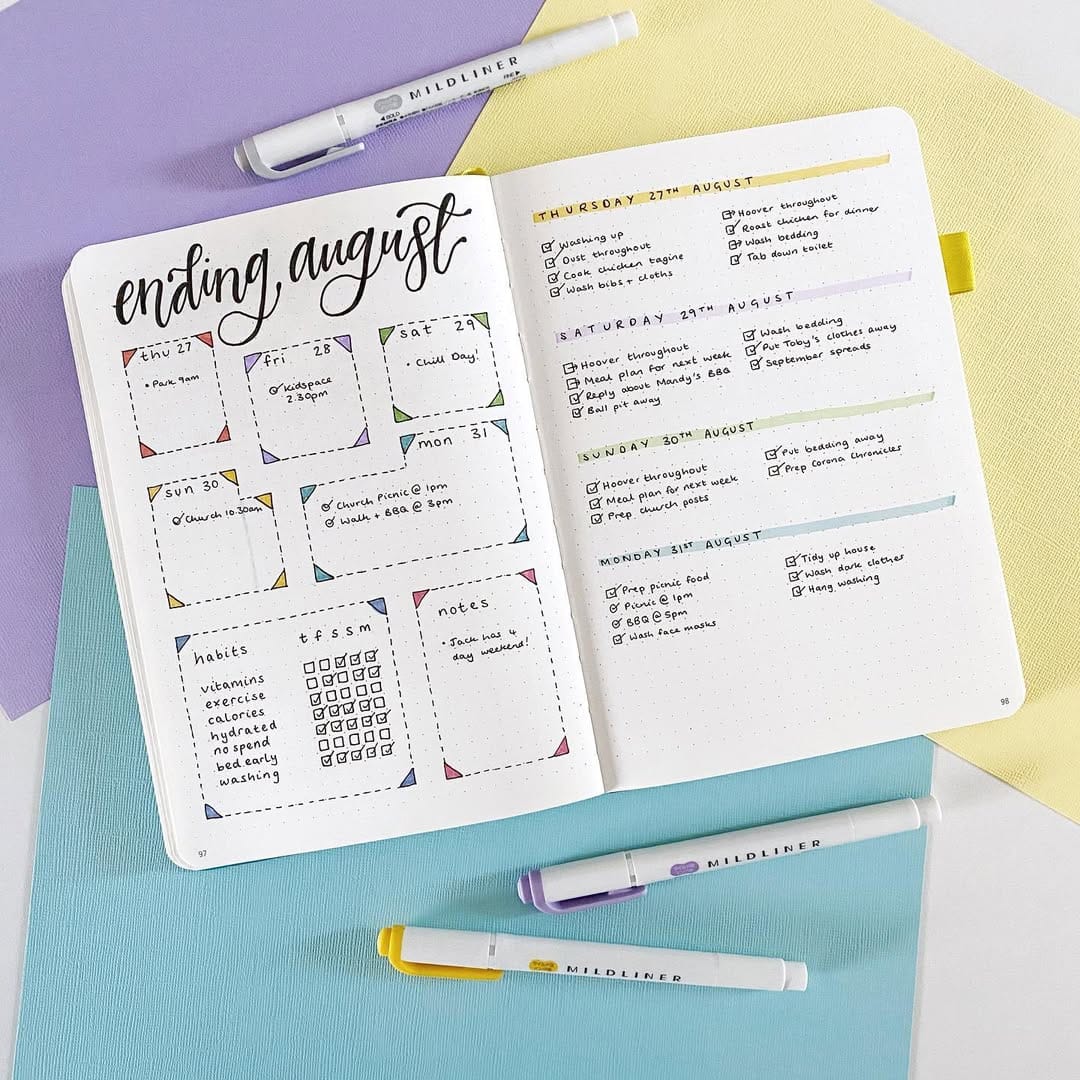 MILDLINER
BOLD
FINE
ending august
thu 27
• Park 9am
fri 28
Kidspace
2.30pm
sat 29
• Chill Day!
sun 30
Church 10.30am
mon 31
Church Picnic @ 1pm
Walk + BBQ @ 3pm
habits
t f s s m
vitamins
exercise
calories
hydrated
no spend
bed early
washing
notes
• Jack has 4
day weekend!
97
THURSDAY 27TH AUGUST
Washing up
Dust throughout
Cook chicken tagine
Wash bibs + cloths
Hoover throughout
Roast chicken for dinner
Wash bedding
Tab down toilet
SATURDAY 29TH AUGUST
Hoover throughout
Meal plan for next week
Reply about Mandy's BBQ
Ball pit away
Wash bedding
Put Toby's clothes away
September spreads
SUNDAY 30TH AUGUST
Hoover throughout
Meal plan for next week
Prep church posts
Put bedding away
Prep Corona Chronicles
MONDAY 31ST AUGUST
Prep picnic food
Picnic @ 1pm
BBQ @ 5pm
Wash face masks
Tidy up house
Wash dark clothes
Hang washing
98
MILDLINER
MILDLINER